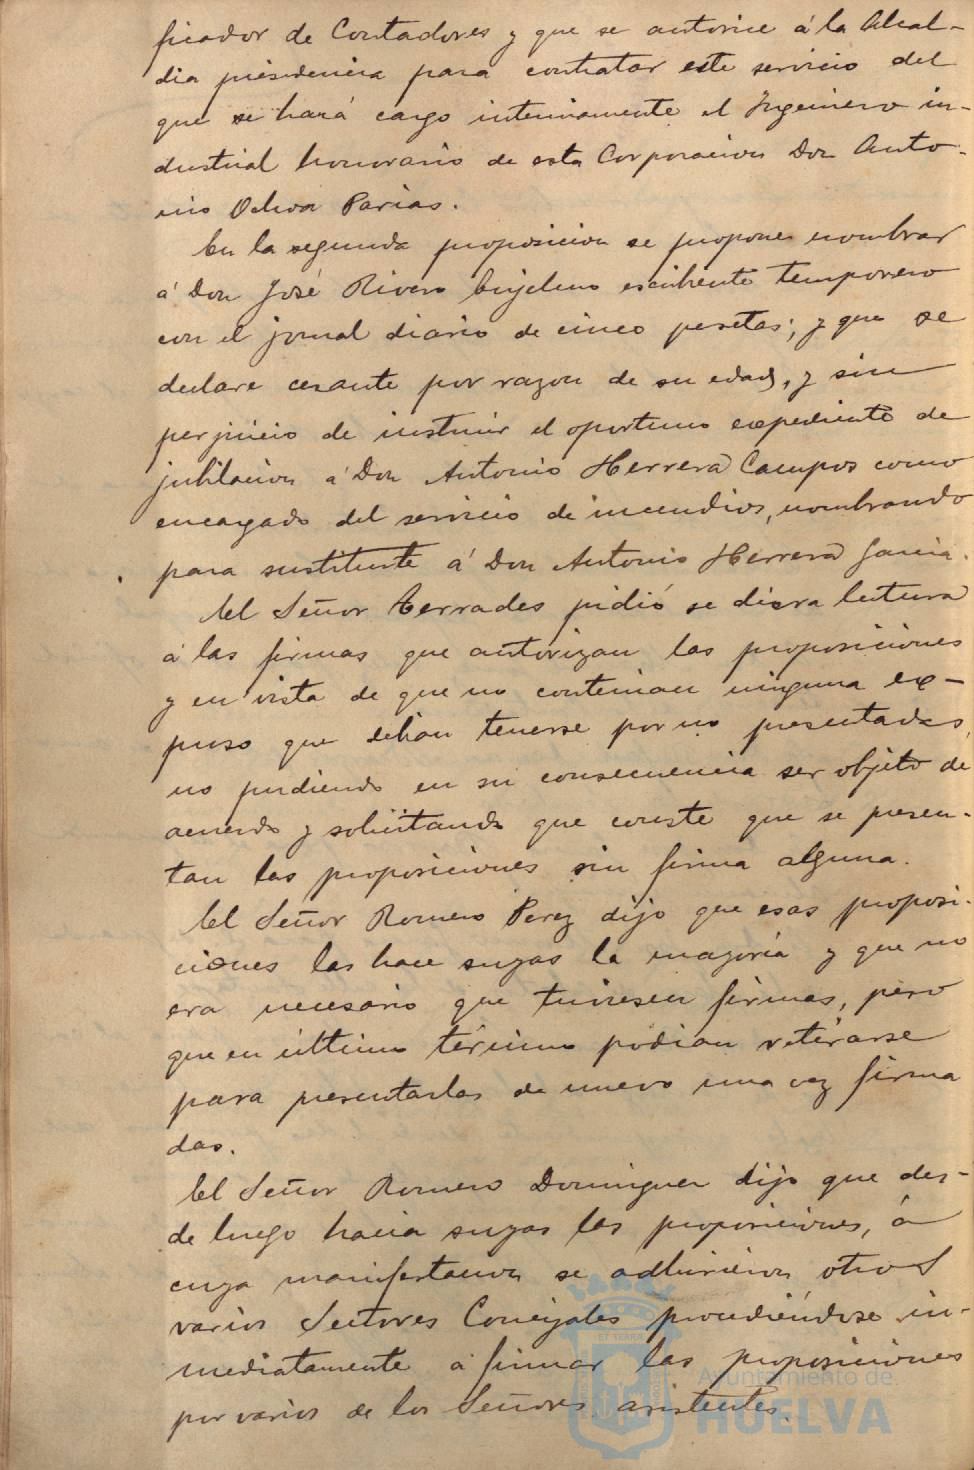 ficador de Contadores y que se autorice á la Alcal-
dia presidencia para contratar este servicio del
que se hará cargo interinamente el Ingeniero in-
dustrial honorario de esta Corporacion Don Anto-
nio Ochoa Parias.
En la segunda proposicion se propone nombrar
á Don José Rivero escribiente temporero
con el jornal diario de cinco pesetas; y que se
declare cesante por razon de su edad, y sin
perjuicio de instruir el oportuno expediente de
jubilacion á Don Antonio Herrera Campos como
encargado del servicio de incendios, nombrando
para sustituirle á Don Antonio Herrera Garcia.
El Señor Terrades pidió se diera lectura
á las firmas que autorizan las proposiciones
y en vista de que no contenian ninguna ex-
puso que debian tenerse por no presentadas,
no pudiendo en su consecuencia ser objeto de
acuerdo y solicitando que conste que se presen-
tan las proposiciones sin firma alguna.
El Señor Romero Perez dijo que esas proposi-
ciones las hace suyas la mayoria y que no
era necesario que tuviesen firmas, pero
que en último término podian retirarse
para presentarlas de nuevo una vez firma
das.
El Señor Romero Dominguez dijo que des-
de luego hacia suyas las proposiciones, á
cuya manifestacion se adhirieron otros
varios Señores Concejales procediéndose in-
mediatamente a firmar las proposiciones
por varios de los Señores asistentes.
Ayuntamiento de
HUELVA